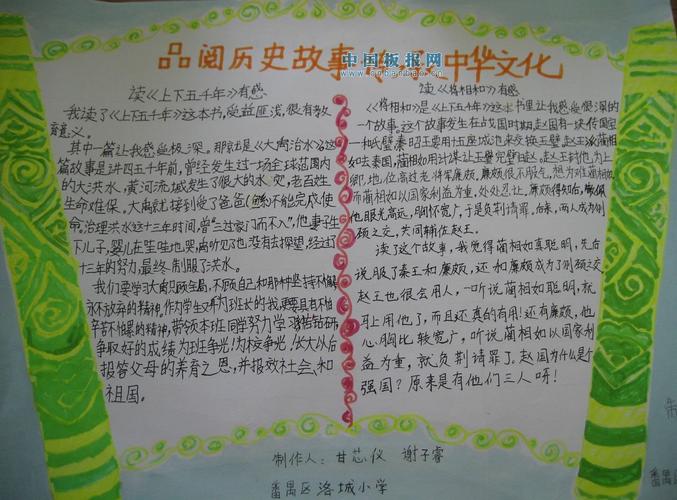 品阅历史故事 传承中华文化
中国板报网
读《上下五千年》有感
我读了《上下五千年》这本书，受益匪浅，很有教
育意义。
其中一篇让我感受极深。那就是《大禹治水》这
篇故事是讲四五千年前，曾经发生过一场全球范围内
的大洪水，黄河流域发生了很大的水灾，老百姓
生命难保。大禹就接到受了爸爸 不能完成使
命，治理洪水这十三年时间，曾"三过家门而不入"，他妻子生
下儿子，婴儿在哇哇地哭，禹听见了也没有去探望，经过了
十三年的努力，最终制服了洪水。
我们要学习大禹顾全局，不顾自己和那种坚持不懈
永不放弃的精神，作为学生又作为班长的我，更要具有不怕
辛苦不怕累的精神，带领本班同学努力学习，刻苦钻研
争取好的成绩为班争光！为校争光！长大以后
报答父母的养育之恩，并报效社会和
祖国。
读《将相和》有感
《将相和》是《上下五千年》这本书里让我感受很深的
一个故事。这个故事发生在战国时期，赵国有一块传国宝
一和氏璧，秦昭王要用十五座城池来交换玉璧，赵王派蔺相
如去秦国，蔺相如用计谋让玉璧完璧归赵，赵王封他为上
卿，地位高过老将军廉颇，廉颇很不服气，想为难蔺相如
而蔺相如以国家利益为重，处处忍让，廉颇得知后，
他眼光高远，胸怀宽广，于是负荆请罪，后来，两人成为刎
颈之交，共同辅佐赵王。
读了这个故事，我觉得蔺相如真聪明，先后
说服了秦王和廉颇，还和廉颇成为了刎颈之交
赵王也很会用人，一听说蔺相如聪明，就
马上用他了，而且还真的有用！还有廉颇，他
心胸比较宽广，听说蔺相如以国家利
益为重，就负荆请罪了，赵国为什么是个
强国？原来是有他们三人呀！
制作人：甘芯仪 谢子睿
番禺区洛城小学